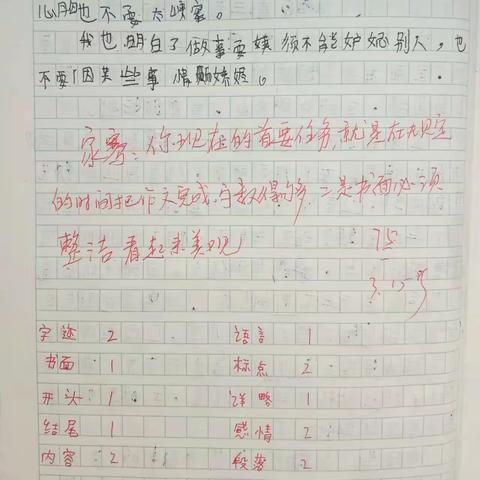 心胸也不要太狭窄。
我也明白了做事要 须不能妒忌别人，也
不要因某些事情 嫉妒。
家寄：你现在的首要任务,就是在规定
的时间把作文完成,字数得够多,二是书面必须
整洁,看起来美观
75
3.15号
字迹 2 语言 1
书面 1 标点 2
开头 1 详略 1
结尾 1 感情 2
内容 2 段落 2